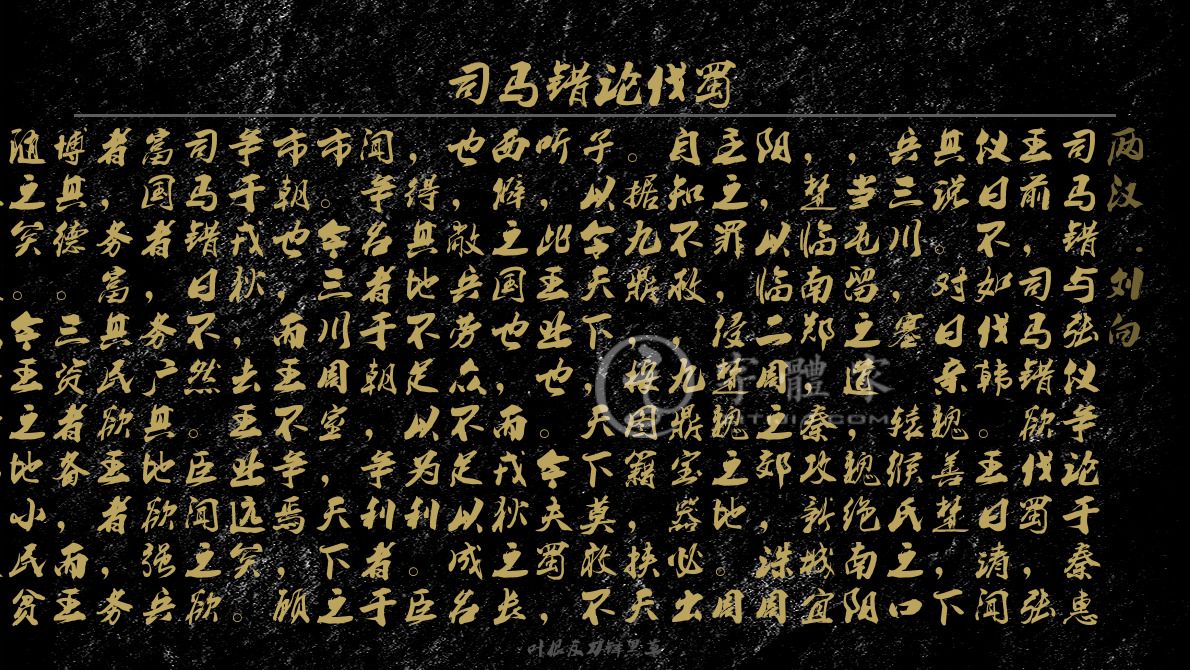 司马错论伐蜀
两汉·刘向
司马错与张仪争论于秦惠
王前，司马错欲伐蜀，张
仪曰不如伐韩。王曰请闻
其说。对曰亲魏善楚，下
兵三川，塞辕缑氏之口
，当屯留之道，魏绝南阳
，楚临南郑，秦攻新城宜
阳，以临二周之郊，诛周
主之罪，侵楚魏之地。周
自知不救，九鼎宝器必出
。据九鼎，按图籍，挟天
子以令天下，天下莫敢不
听，此王业也。今夫蜀，
西僻之国也，而戎狄之长
也，敝兵劳众不足以成名
，得其地不足以为利。臣
闻争名者于朝，争利者于
市。今三川周室，天下之
市朝也，而王不争焉，顾
争于戎狄，去王业远矣。
司马错曰不然。臣闻之欲
富国者，务广其地欲强兵
者，务富其民欲王者，务
博其德。三资者备，而王
随之矣。今王之地小民贫